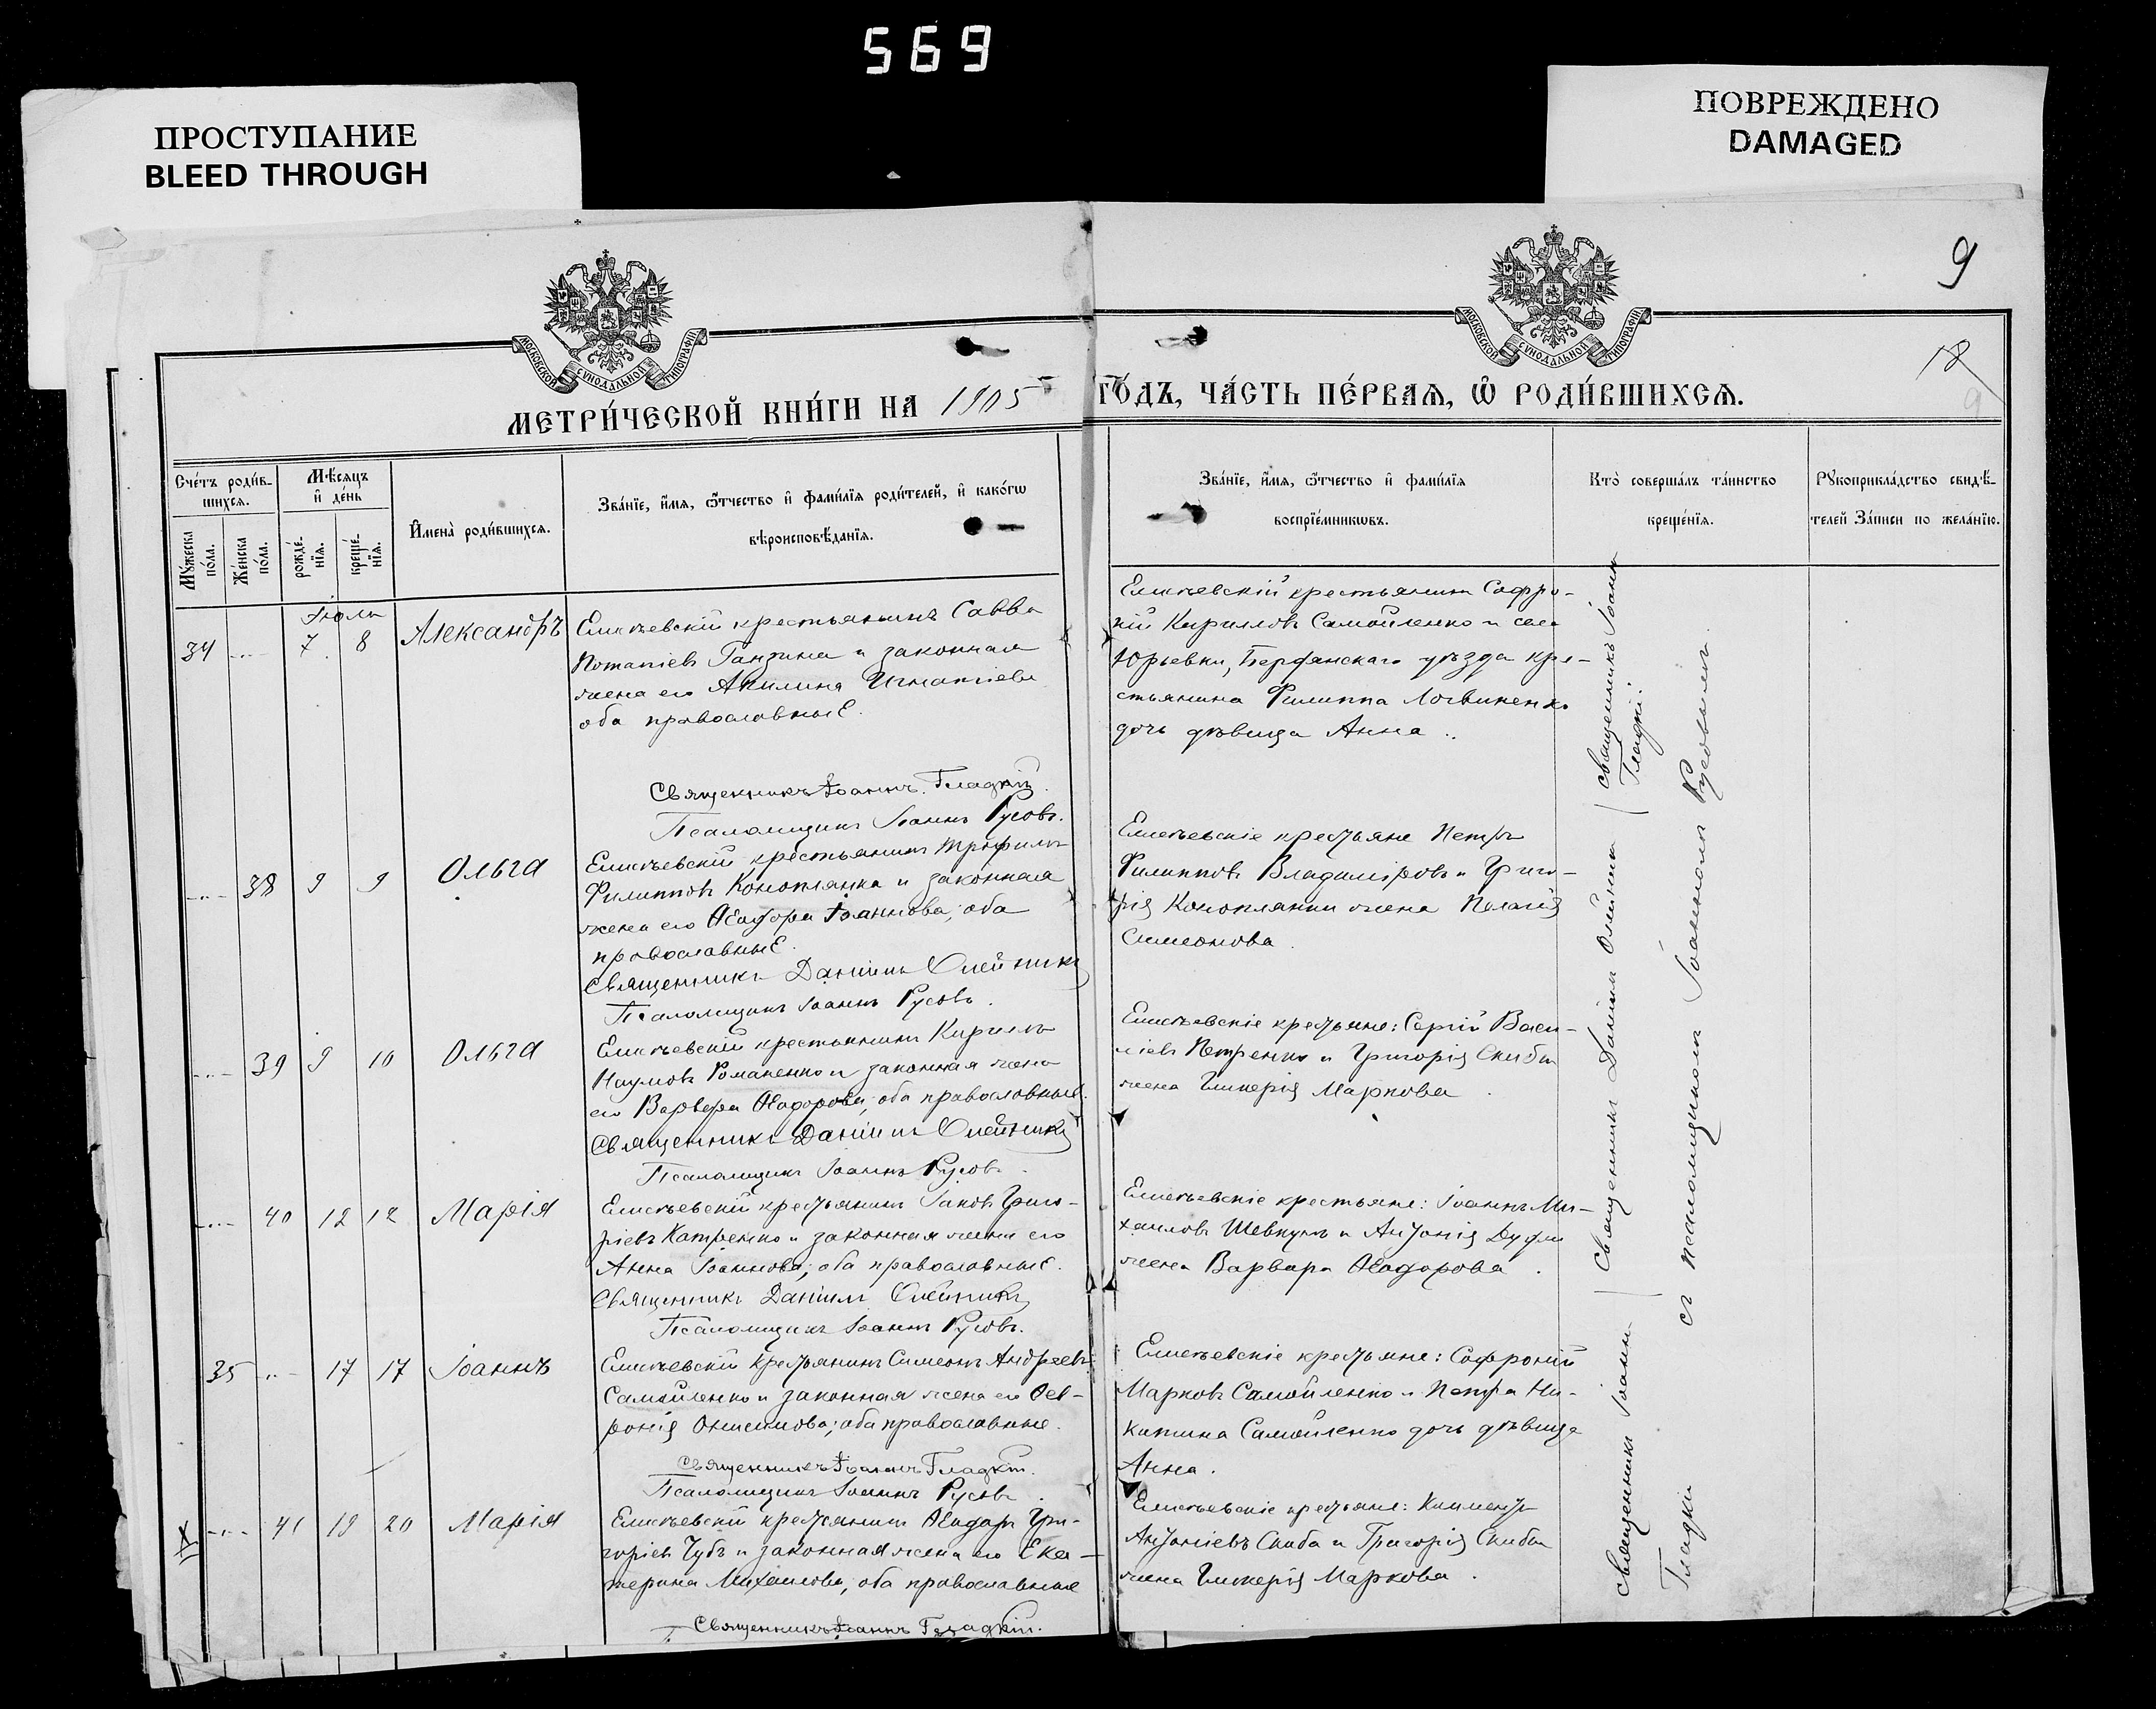 569
ПРОСТУПАНИЕ
BLEED THROUGH
ПОВРЕЖДЕНО
DAMAGED
9
18
9
МОСКОВСКОЙ СѴНОДАЛЬНОЙ ТИПОГРАФІИ
МОСКОВСКОЙ СѴНОДАЛЬНОЙ ТИПОГРАФІИ
МЕТРИ́ЧЕСКОЙ КНИ́ГИ НА 1905 ГО́ДЪ, ЧА́СТЬ ПЕ́РВАѦ, Ѡ҆ РОДИ́ВШИХСѦ.
Сче́тъ роди́в-
шихсѧ.
Мꙋ́жеска
по́ла.
Же́нска
по́ла.
Мѣ́сѧцъ
и҆ де́нь
рожде́-
нїѧ.
креще́-
нїѧ.
И҆мена̀ роди́вшихсѧ.
Зва́нїе, и҆́мѧ, ѻ҆́тчество и҆ фами́лїѧ роди́телей, и҆ како́гѡ
вѣроисповѣ́данїѧ.
Зва́нїе, и҆́мѧ, ѻ҆́тчество и҆ фами́лїѧ
воспрїе́мникѡвъ.
Кто̀ соверша́лъ та́инство
креще́нїѧ.
Рꙋкоприкла́дство свидѣ́-
телей За́писи по жела́нїю.
Іюль
34 7 8 Александръ
Елисѣевскій крестьянинъ Савва
Потапіевъ Ганзина и законная
жена его Акилина Игнатіева
оба православные.
Священникъ Іоаннъ Гладкій.
Псаломщикъ Іоаннъ Русовъ.
Елисѣевскій крестьянинъ Софро-
ній Кирилловъ Самойленко и села
Юрьевки, Бердянскаго уѣзда кре-
стьянина Филиппа Логвиненко
дочь дѣвица Анна.
38 9 9 Ольга
Елисѣевскій крестьянинъ Трофимъ
Филипповъ Коноплянка и законная
жена его Ѳеодора Іоаннова; оба
православные.
Священникъ Даніилъ Олейникъ
Псаломщикъ Іоаннъ Русовъ.
Елисѣевскіе крестьяне Петръ
Филипповъ Владиміровъ и Григо-
рія Коноплянки жена Пелагія
Симеонова.
39 9 10 Ольга
Елисѣевскій крестьянинъ Кириллъ
Наумовъ Романенко и законная жена
его Варвара Ѳеодорова; оба православные.
Священникъ Даніилъ Олейникъ
Псаломщикъ Іоаннъ Русовъ.
Елисѣевскіе крестьяне: Сергій Васи-
ліевъ Петренко и Григорія Скибы
жена Гликерія Маркова.
40 12 12 Марія
Елисѣевскій крестьянинъ Іаковъ Григо-
ріевъ Катренко и законная жена его
Анна Іоаннова; оба православные.
Священникъ Даніилъ Олейникъ
Псаломщикъ Іоаннъ Русовъ.
Елисѣевскіе крестьяне: Іоаннъ Ми-
хаиловъ Шевкунъ и Антонія
жена Варвара Ѳеодорова.
35 17 17 Іоаннъ
Елисѣевскій крестьянинъ Симеонъ Андреевъ
Самойленко и законная жена его Фев-
ронія Онисимова; оба православные.
Священникъ Іоаннъ Гладкій.
Псаломщикъ Іоаннъ Русовъ.
Елисѣевскіе крестьяне: Софроній
Марковъ Самойленко и Петра Ни-
китина Самойленко дочь дѣвица
Анна.
41 19 20 Марія
Елисѣевскій крестьянинъ Ѳеодоръ Гри-
горіевъ Чубъ и законная жена его Ека-
терина Михаилова, оба православные
Священникъ Іоаннъ Гладкій.
Елисѣевскіе крестьяне: Климентъ
Антоніевъ Скиба и Григорія Скибы
жена Гликерія Маркова.
Священникъ Іоаннъ
Гладкій
Священникъ Даніилъ Олейникъ
священникъ Іоаннъ
Гладкій
съ псаломщикомъ Іоанномъ Русовымъ.